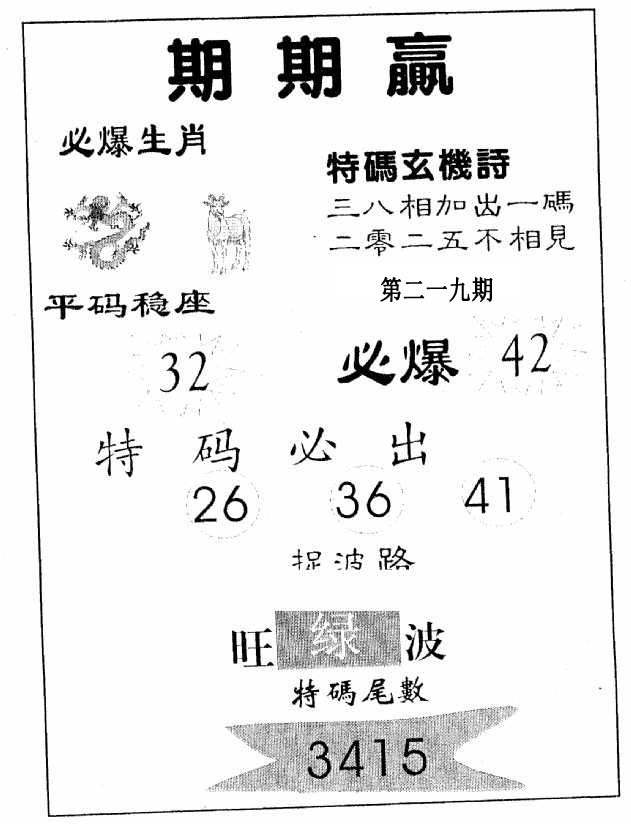 期期贏
必爆生肖
特碼玄機詩
三八相加出一碼
二零二五不相見
平码稳座
第二一九期
32
必爆 42
特码必出
26 36 41
捉波路
旺绿波
特碼尾數
3415